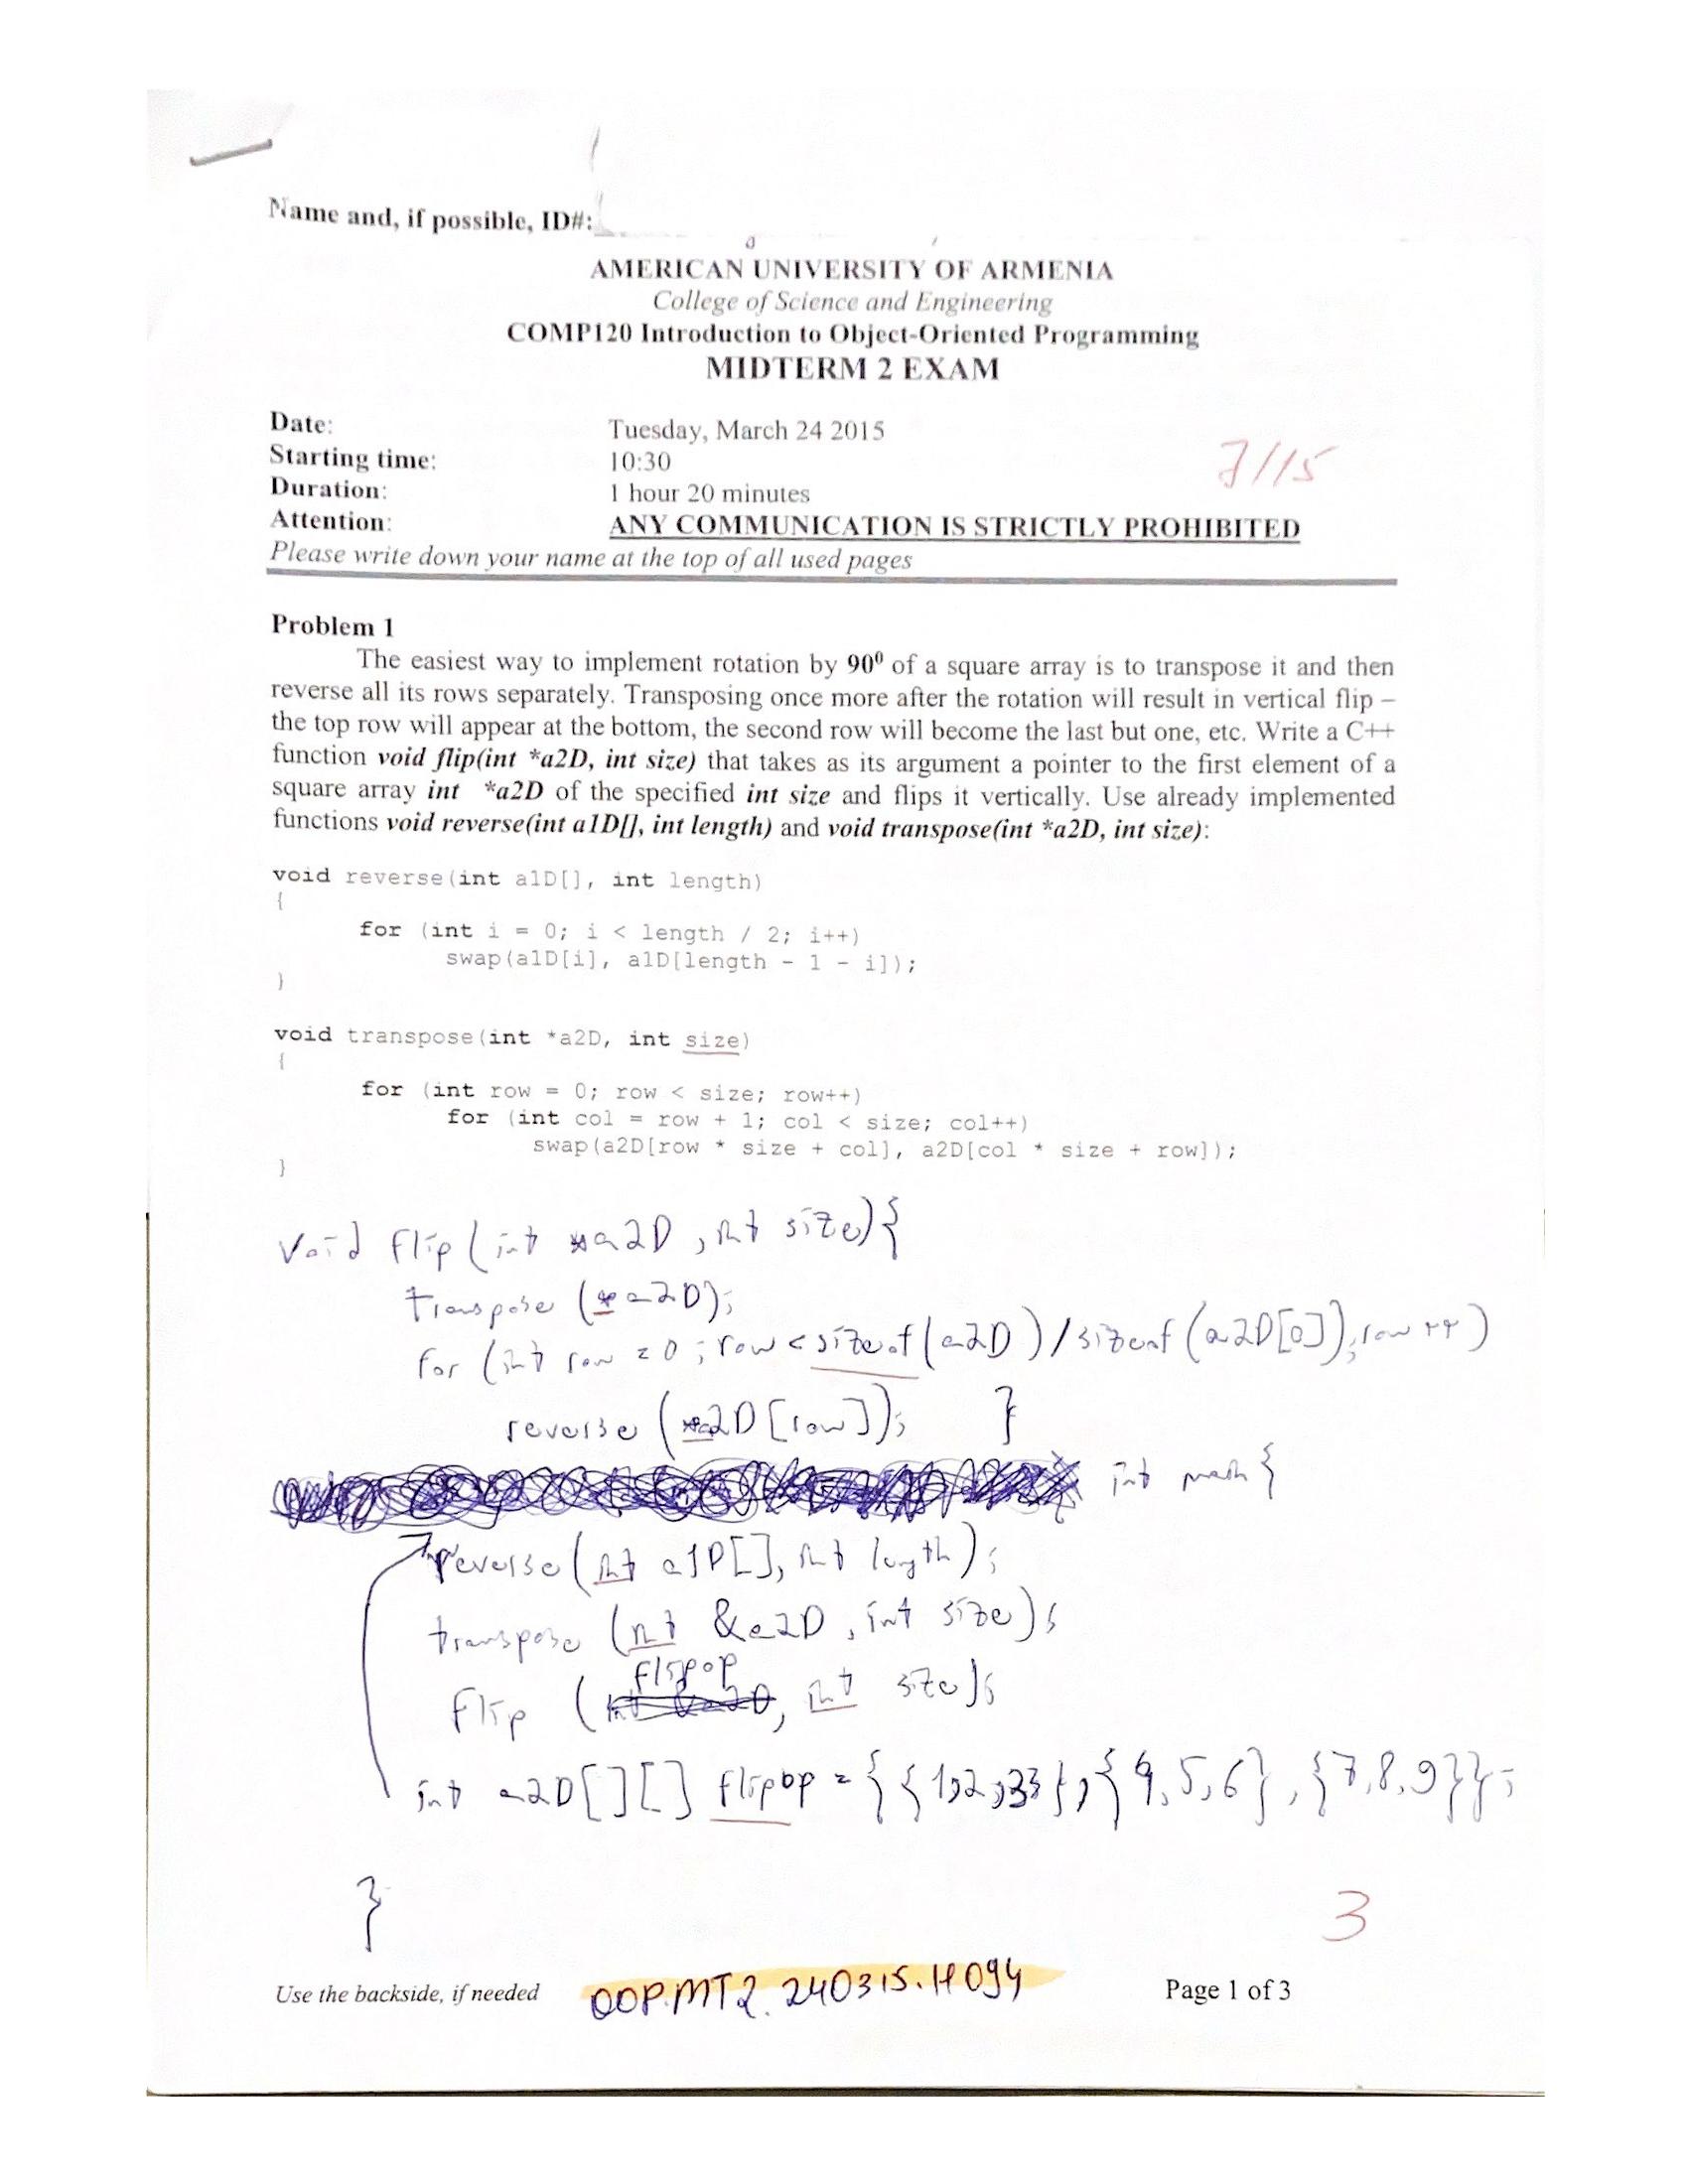 Name and, if possible, ID#:
AMERICAN UNIVERSITY OF ARMENIA
College of Science and Engineering
COMP120 Introduction to Object-Oriented Programming
MIDTERM 2 EXAM
Date: Tuesday, March 24 2015
Starting time: 10:30
7/15
Duration: 1 hour 20 minutes
Attention: ANY COMMUNICATION IS STRICTLY PROHIBITED
Please write down your name at the top of all used pages
Problem 1
The easiest way to implement rotation by 90⁰ of a square array is to transpose it and then
reverse all its rows separately. Transposing once more after the rotation will result in vertical flip –
the top row will appear at the bottom, the second row will become the last but one, etc. Write a C++
function void flip(int *a2D, int size) that takes as its argument a pointer to the first element of a
square array int *a2D of the specified int size and flips it vertically. Use already implemented
functions void reverse(int a1D[], int length) and void transpose(int *a2D, int size):
void reverse(int a1D[], int length)
{
for (int i = 0; i < length / 2; i++)
swap(a1D[i], a1D[length - 1 - i]);
}
void transpose(int *a2D, int size)
{
for (int row = 0; row < size; row++)
for (int col = row + 1; col < size; col++)
swap(a2D[row * size + col], a2D[col * size + row]);
}
void flip(int *a2D, int size){
transpose (*a2D);
for (int row = 0; row < sizeof(a2D)/sizeof(a2D[0]); row++)
reverse (*a2D[row]); }
int main {
reverse(int a1D[], int length);
transpose (int &a2D, int size);
flip (flipop, int size);
int a2D[][] flipop = {{1,2,33},{4,5,6},{7,8,9}};
}
3
Use the backside, if needed OOP.MT2.240315.H094 Page 1 of 3